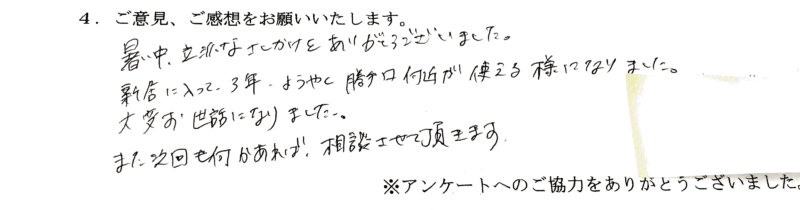 4．ご意見、ご感想をお願いいたします。
暑い中、立派なさしかけをありがとうございました。
新居に入って、3年、ようやく勝手口付近が使える様になりました。
大変お世話になりました。
また次回も何かあれば、相談させて頂きます。
※アンケートへのご協力をありがとうございました。